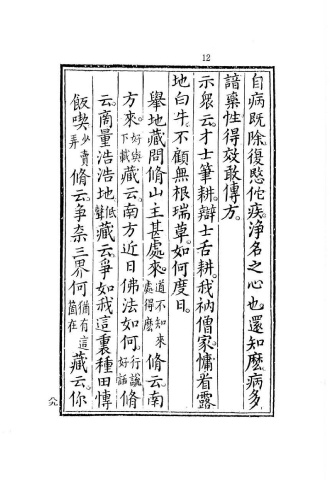 12
自病既除。復愍佗疾。淨名之心也。還知麼。病多
諳藥性得效敢傳方。
示眾云。才士筆耕。辯士舌耕。我衲僧家。慵看露
地白牛。不顧無根瑞草。如何度日。
舉地藏問脩山主甚處來。道不知來處得麼脩云。南
方來。好與下載藏云。南方近日佛法如何。行說好話脩
云。商量浩浩地。低聲藏云。爭如我這裏種田愽
飯喫。少賣弄脩云。爭奈三界何。猶有這箇在藏云。你
八九